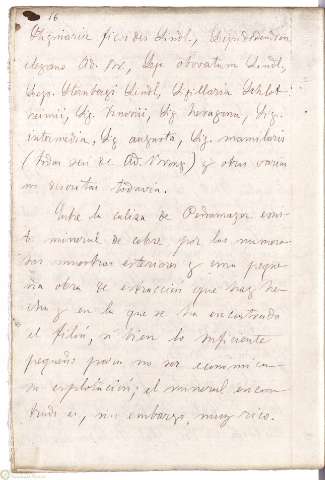 16
Sagenaria ficoides Lindl., Lepidodendron
elegans Ad. Br., Lep. obovatum Lindl.,
Lep. Stenbergi Lindl., Sigillaria Schlot-
heimii, Sig. Knorrii, Sig. hexagona, Sig.
intermedia, Sig angusta, Sig. mamilaris
(todas son de Ad. Brong.) y otras varias
no descritas todavía.
Entre la caliza de Pedramazor exis-
te mineral de cobre por las numero-
sas muestras exteriores y una peque-
ña obra de extracción que hay he-
cha y en la que se ha encontrado
el filón, si bien lo suficiente
pequeño para no ser económica
su explotación; el mineral encon-
trado es, sin embargo, muy rico.